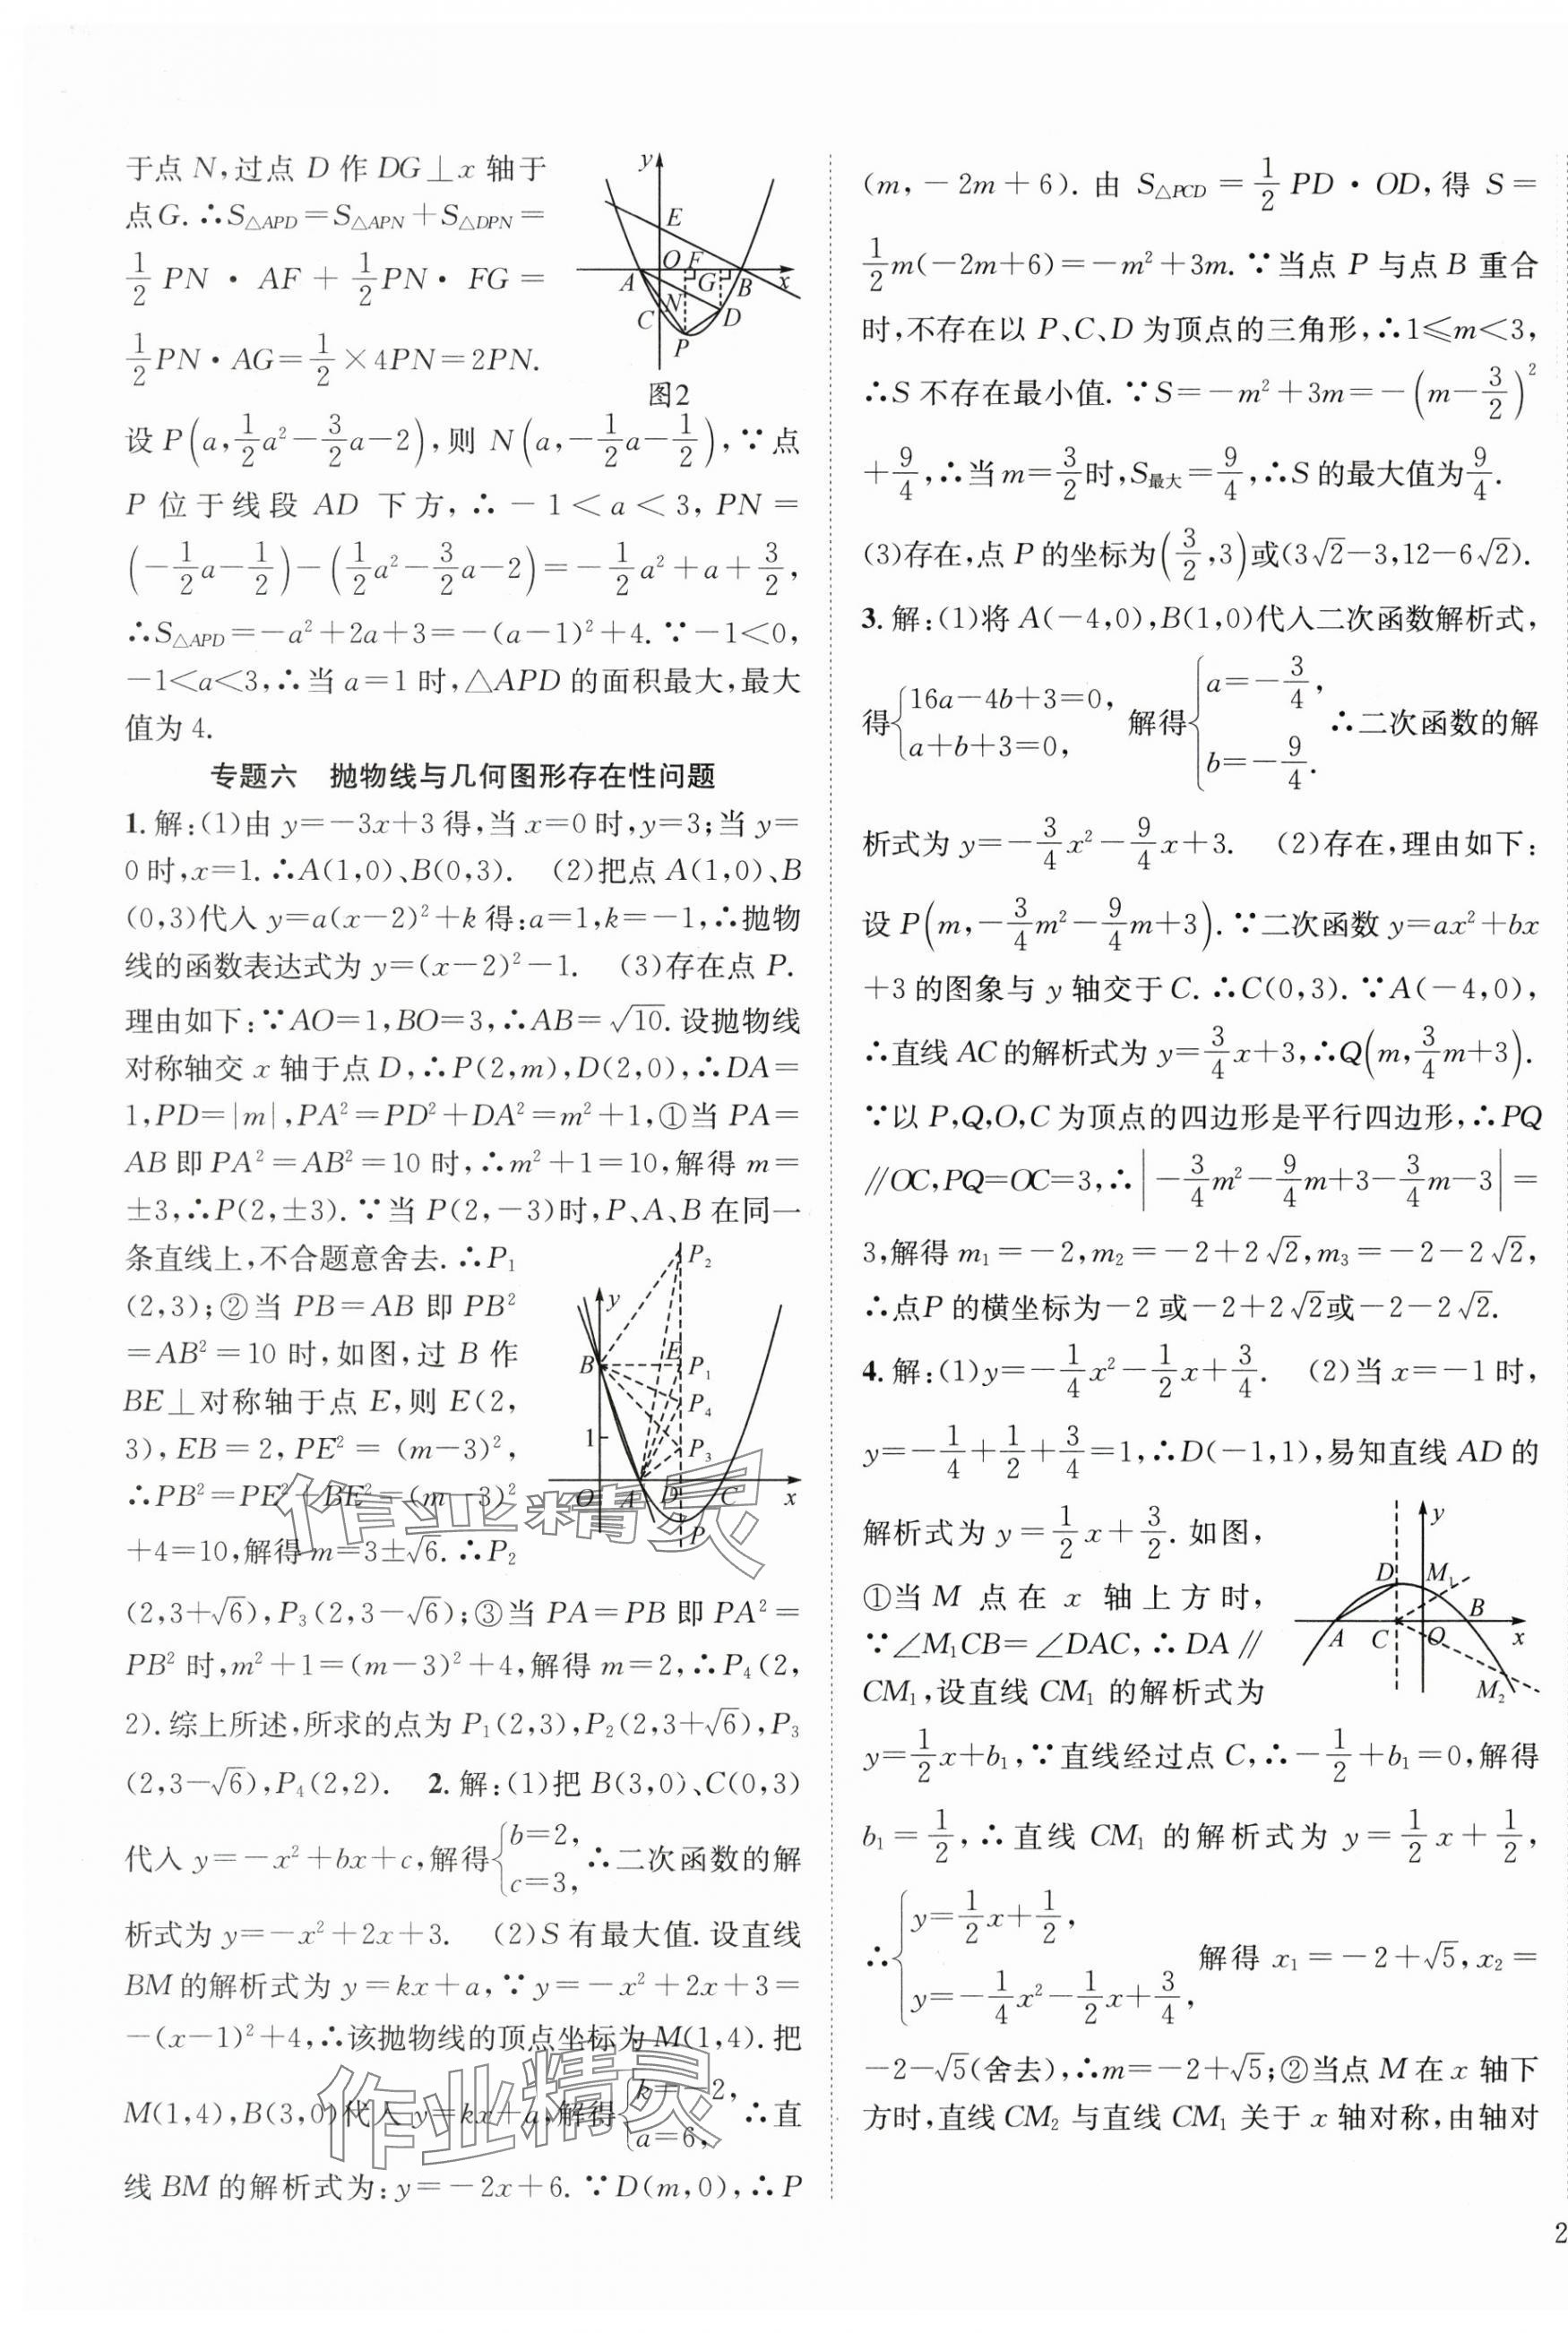 于点 N,过点 D 作 DG⊥x 轴于
点G. ∴S△APD=S△APN+S△DPN=
1/2 PN · AF + 1/2 PN · FG =
1/2 PN · AG= 1/2 ×4PN=2PN.
y
E
O F
A
G
B
x
N
C
D
P
图2
设 P(a, 1/2 a²- 3/2 a-2),则 N(a,- 1/2 a- 1/2),∵点
P 位于线段 AD 下方,∴-1<a<3,PN=
(- 1/2 a- 1/2)-(1/2 a²- 3/2 a-2)=- 1/2 a²+a+ 3/2,
∴S△APD=-a²+2a+3=-(a-1)²+4. ∵-1<0,
-1<a<3,∴当 a=1 时,△APD 的面积最大,最大
值为 4.
专题六 抛物线与几何图形存在性问题
1.解:(1)由 y=-3x+3 得,当 x=0 时,y=3;当 y=
0 时,x=1. ∴A(1,0)、B(0,3). (2)把点 A(1,0)、B
(0,3)代入 y=a(x-2)²+k 得:a=1,k=-1,∴抛物
线的函数表达式为 y=(x-2)²-1. (3)存在点 P.
理由如下:∵AO=1,BO=3,∴AB=√10. 设抛物线
对称轴交 x 轴于点 D,∴P(2,m),D(2,0),∴DA=
1,PD=|m|,PA²=PD²+DA²=m²+1,①当 PA=
AB 即 PA²=AB²=10 时,∴m²+1=10,解得 m=
±3,∴P(2,±3). ∵当 P(2,-3)时,P、A、B 在同一
条直线上,不合题意舍去. ∴P₁
(2,3);②当 PB=AB 即 PB²
=AB²=10 时,如图,过 B 作
BE⊥对称轴于点 E,则 E(2,
3),EB=2,PE²=(m-3)²,
∴PB²=PE²+BE²=(m-3)²
+4=10,解得 m=3±√6. ∴P₂
y
P₂
B
E
P₁
P₄
1
P₃
O
A
D
C
x
P
(2,3+√6),P₃(2,3-√6);③当 PA=PB 即 PA²=
PB² 时,m²+1=(m-3)²+4,解得 m=2,∴P₄(2,
2). 综上所述,所求的点为 P₁(2,3),P₂(2,3+√6),P₃
(2,3-√6),P₄(2,2). 2.解:(1)把 B(3,0)、C(0,3)
代入 y=-x²+bx+c,解得{b=2, c=3, ∴二次函数的解
析式为 y=-x²+2x+3. (2)S 有最大值. 设直线
BM 的解析式为 y=kx+a,∵y=-x²+2x+3=
-(x-1)²+4,∴该抛物线的顶点坐标为 M(1,4). 把
M(1,4),B(3,0)代入 y=kx+a,解得{k=-2, a=6, ∴直
线 BM 的解析式为:y=-2x+6. ∵D(m,0),∴P
作业精灵
作业精灵
(m,-2m+6). 由 S△PCD= 1/2 PD · OD,得 S=
1/2 m(-2m+6)=-m²+3m. ∵当点 P 与点 B 重合
时,不存在以 P、C、D 为顶点的三角形,∴1≤m<3,
∴S 不存在最小值. ∵S=-m²+3m=-(m- 3/2)²
+ 9/4,∴当 m= 3/2 时,S最大= 9/4,∴S 的最大值为 9/4.
(3)存在,点 P 的坐标为(3/2,3)或(3√2-3,12-6√2).
3.解:(1)将 A(-4,0),B(1,0)代入二次函数解析式,
得{16a-4b+3=0, a+b+3=0, 解得{a=- 3/4, b=- 9/4. ∴二次函数的解
析式为 y=- 3/4 x²- 9/4 x+3. (2)存在,理由如下:
设 P(m,- 3/4 m²- 9/4 m+3). ∵二次函数 y=ax²+bx
+3 的图象与 y 轴交于 C. ∴C(0,3). ∵A(-4,0),
∴直线 AC 的解析式为 y= 3/4 x+3,∴Q(m, 3/4 m+3).
∵以 P,Q,O,C 为顶点的四边形是平行四边形,∴PQ
∥OC,PQ=OC=3,∴|- 3/4 m²- 9/4 m+3- 3/4 m-3|=
3,解得 m₁=-2,m₂=-2+2√2,m₃=-2-2√2,
∴点P 的横坐标为-2 或-2+2√2或-2-2√2.
4.解:(1)y=- 1/4 x²- 1/2 x+ 3/4. (2)当 x=-1 时,
y=- 1/4 + 1/2 + 3/4 =1,∴D(-1,1),易知直线 AD 的
解析式为 y= 1/2 x+ 3/2. 如图,
①当 M 点在 x 轴上方时,
∵∠M₁CB=∠DAC,∴DA∥
CM₁,设直线 CM₁ 的解析式为
y
D
M₁
B
A
C
O
x
M₂
y= 1/2 x+b₁,∵直线经过点 C,∴- 1/2 +b₁=0,解得
b₁= 1/2,∴直线 CM₁ 的解析式为 y= 1/2 x+ 1/2,
∴{y= 1/2 x+ 1/2, y=- 1/4 x²- 1/2 x+ 3/4, 解得 x₁=-2+√5,x₂=
-2-√5(舍去),∴m=-2+√5;②当点 M 在 x 轴下
方时,直线 CM₂ 与直线 CM₁ 关于 x 轴对称,由轴对
2